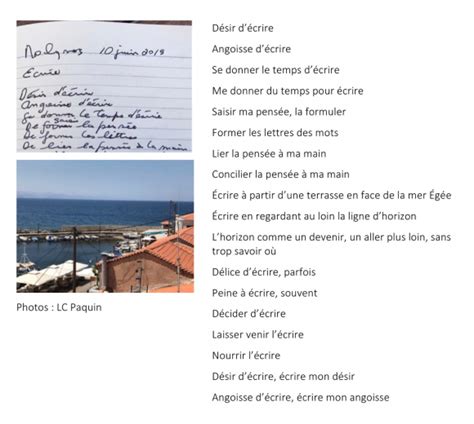 Molyvos 10 juin 2018
Ecrire
Désir d'écrire
Angoisse d'écrire
Se donner le temps d'écrire
De former la pensée
saisir
De former les lettres
De lier la pensée à la main
Photos : LC Paquin
Désir d'écrire
Angoisse d'écrire
Se donner le temps d'écrire
Me donner du temps pour écrire
Saisir ma pensée, la formuler
Former les lettres des mots
Lier la pensée à ma main
Concilier la pensée à ma main
Écrire à partir d'une terrasse en face de la mer Égée
Écrire en regardant au loin la ligne d'horizon
L'horizon comme un devenir, un aller plus loin, sans
trop savoir où
Délice d'écrire, parfois
Peine à écrire, souvent
Décider d'écrire
Laisser venir l'écrire
Nourrir l'écrire
Désir d'écrire, écrire mon désir
Angoisse d'écrire, écrire mon angoisse